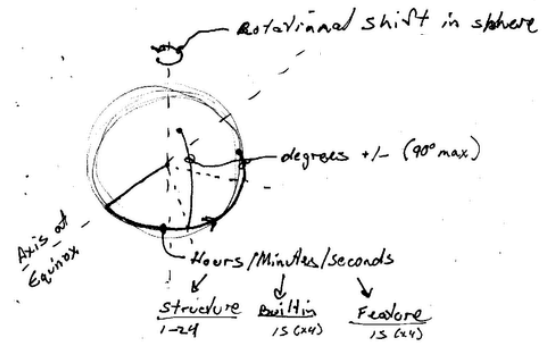 Rotational shift in sphere
degrees +/- (90° max)
Axis at
Equinox
Hours/Minutes/seconds
Structure Builtin Feature
1-24 15 (x4) 15 (x4)